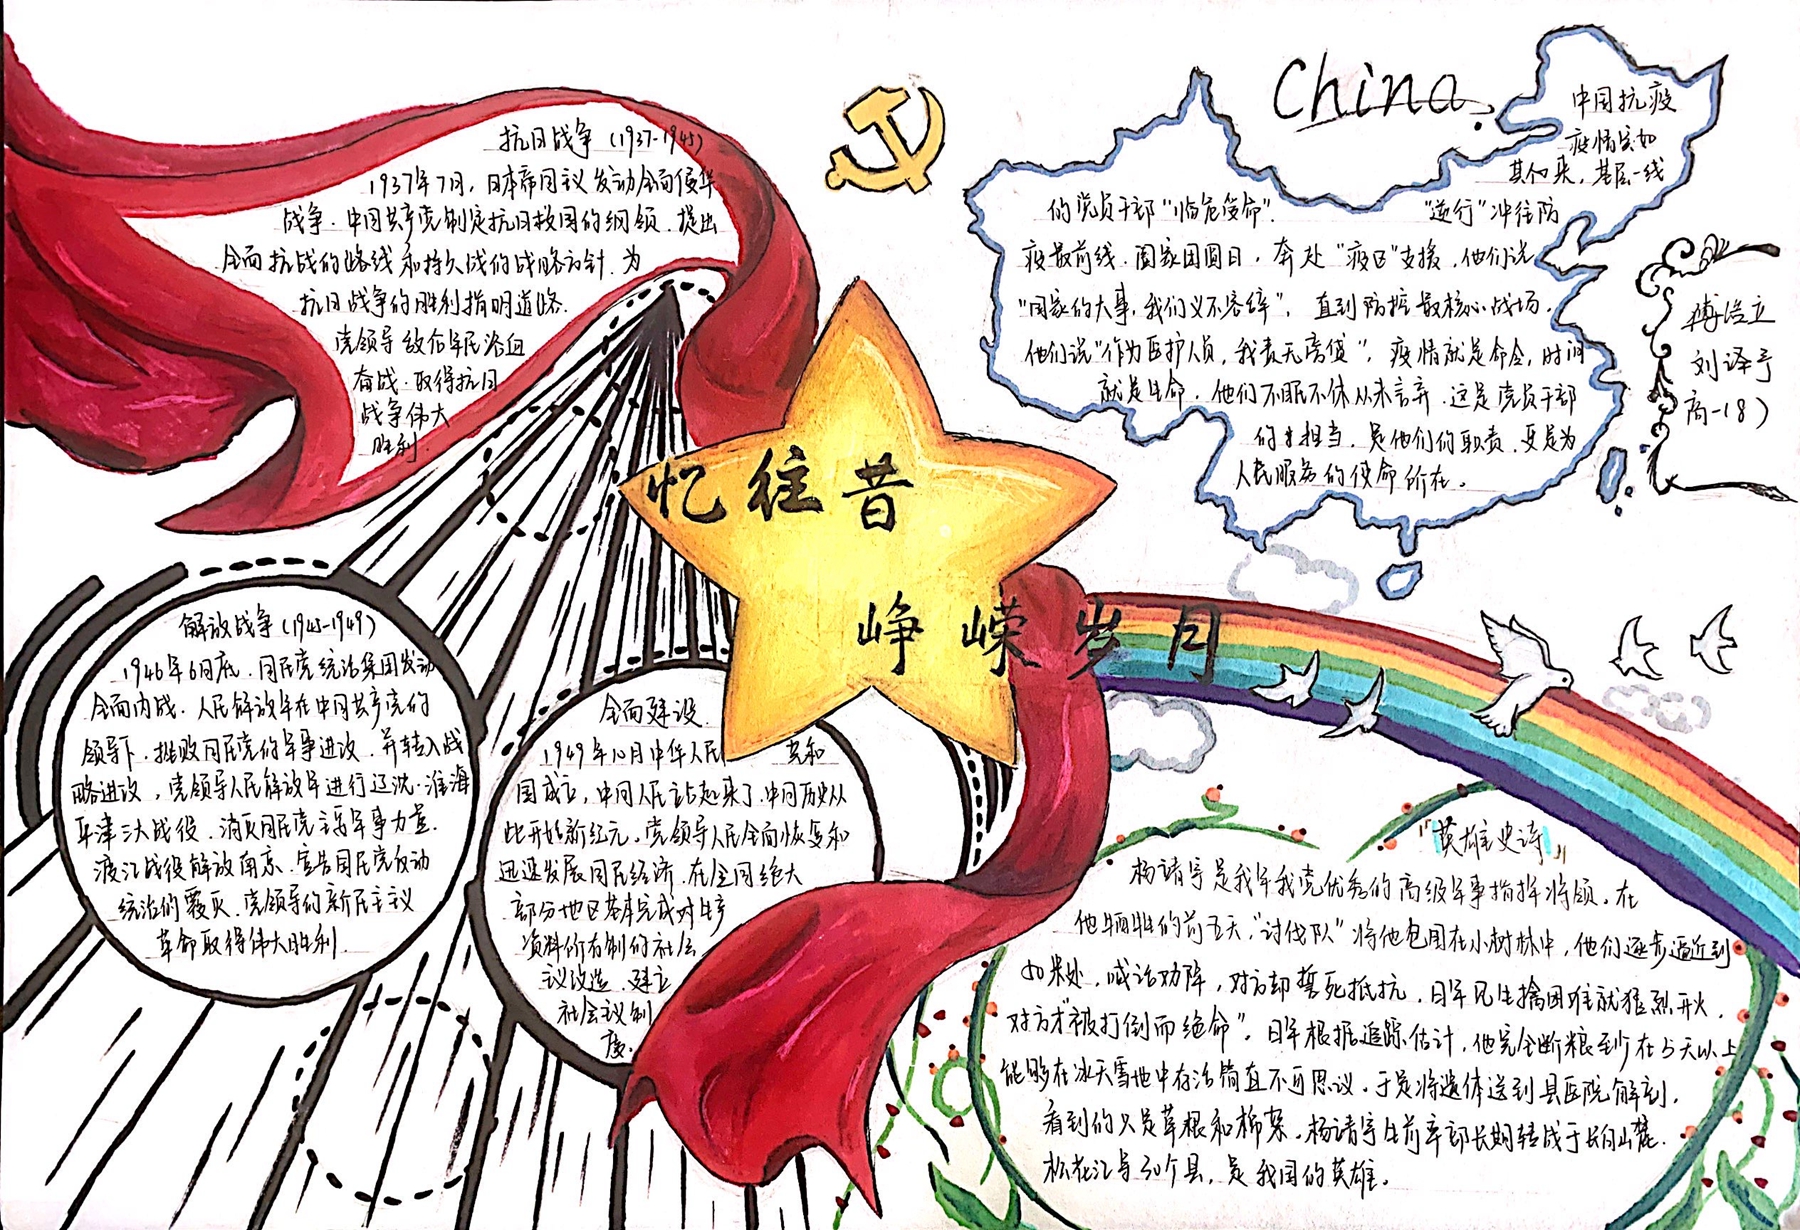 抗日战争(1937-1945)
1937年7月,日本帝国主义发动全面侵华
战争.中国共产党制定抗日救国的纲领.提出
全面抗战的路线和持久战的战略方针.为
抗日战争的胜利指明道路.
党领导敌后军民浴血
奋战.取得抗日
战争伟大
胜利.
China
中国抗疫
疫情突如
其来,基层一线
的党员干部"临危受命".
"逆行"冲往防
疫最前线.阖家团圆日,奔赴"疫区"支援,他们说
"国家的大事,我们义不容辞",直到防控最核心战场.
他们说"作为医护人员,我责无旁贷".疫情就是命令,时间
就是生命.他们不眠不休从未言弃.这是党员干部
的担当,是他们的职责,更是为
人民服务的使命所在。
刘译予
高一(8)
忆往昔
峥嵘岁月
解放战争(1945-1949)
1946年6月底.国民党统治集团发动
全面内战.人民解放军在中国共产党的
领导下.挫败国民党的军事进攻.并转入战
略进攻,党领导人民解放军进行辽沈.淮海
平津三大战役.消灭国民党主要军事力量.
渡江战役解放南京.宣告国民党反动
统治的覆灭.党领导的新民主主义
革命取得伟大胜利.
全面建设.
1949年10月中华人民共和
国成立,中国人民站起来了.中国历史从
此开始新纪元,党领导人民全面恢复和
迅速发展国民经济.在全国绝大
部分地区基本完成对生产
资料所有制的社会
主义改造.建立
社会主义制
度.
"英雄史诗"
杨靖宇是我军我党优秀的高级军事指挥将领。在
他牺牲的前五天,"讨伐队"将他包围在小树林中,他们逐步逼近到
米处,喊话劝降,对方却誓死抵抗.日军见生擒困难就猛烈开火,
对方才"被打倒而绝命"。日军根据追踪估计,他完全断粮到少在5天以上
能够在冰天雪地中存活简直不可思议.于是将遗体送到县医院解剖,
看到的只是草根和棉絮.杨靖宇生前率部长期转战于长白山麓.
松花江与30个县,是我国的英雄。